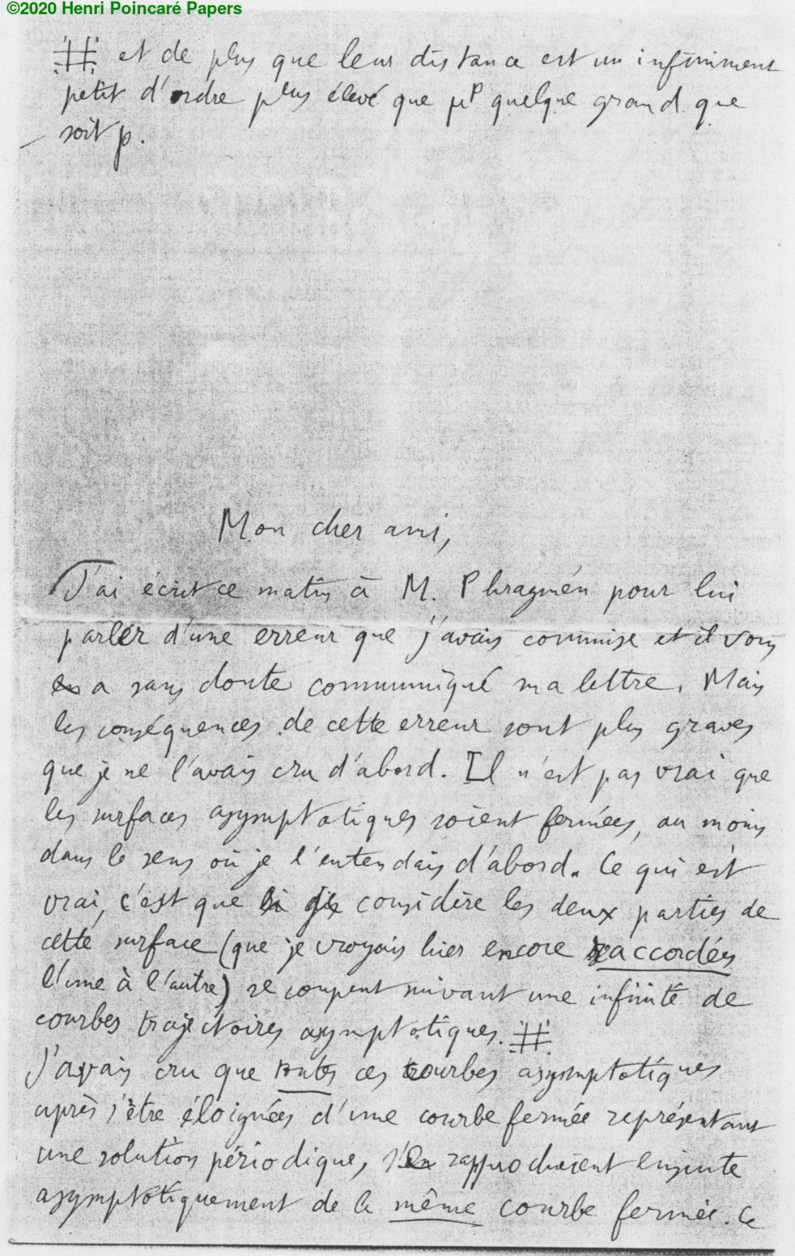 ©2020 Henri Poincaré Papers
# et de plus que leur distance est un infiniment
petit d'ordre plus élevé que μᵖ quelque grand que
soit p.
Mon cher ami,
J'ai écrit ce matin à M. Phragmén pour lui
parler d'une erreur que j'avais commise et il vous
a sans doute communiqué ma lettre. Mais
les conséquences de cette erreur sont plus graves
que je ne l'avais cru d'abord. Il n'est pas vrai que
les surfaces asymptotiques soient fermées, au moins
dans le sens où je l'entendais d'abord. Ce qui est
vrai, c'est que si je considère les deux parties de
cette surface (que je croyais hier encore raccordées
l'une à l'autre) se coupent suivant une infinité de
courbes trajectoires asymptotiques. #
J'avais cru que toutes ces courbes asymptotiques
après s'être éloignées d'une courbe fermée représentant
une solution périodique, s'en rapprochaient ensuite
asymptotiquement de la même courbe fermée. Ce